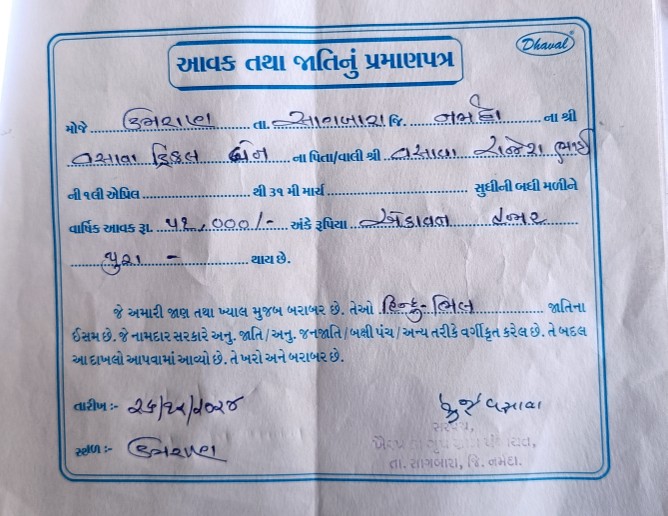 Dhaval
આવક તથા જાતિનું પ્રમાણપત્ર
મોજે ઉમરાણ તા. સાગબારા જિ. નર્મદા ના શ્રી
વસાવા ના પિતા/વાલી શ્રી વસાવા રાજેશ ભાઈ
ની ૧લી એપ્રિલ થી ૩૧ મી માર્ચ સુધીની બધી મળીને
વાર્ષિક આવક રૂા. ૫૧,૦૦૦/- અંકે રૂપિયા એકાવન હજાર
પુરા - થાય છે.
જે અમારી જાણ તથા ખ્યાલ મુજબ બરાબર છે. તેઓ હિન્દુ-ભિલ જાતિના
ઈસમ છે. જે નામદાર સરકારે અનુ. જાતિ/અનુ. જનજાતિ/બક્ષી પંચ/અન્ય તરીકે વર્ગીકૃત કરેલ છે. તે બદલ
આ દાખલો આપવામાં આવ્યો છે. તે ખરો અને બરાબર છે.
તારીખ :- ૨૬/૧૨/૨૦૨૪
વસાવા
સરપંચ,
સ્થળ :- ઉમરાણ
તા. સાગબારા, જિ. નર્મદા.